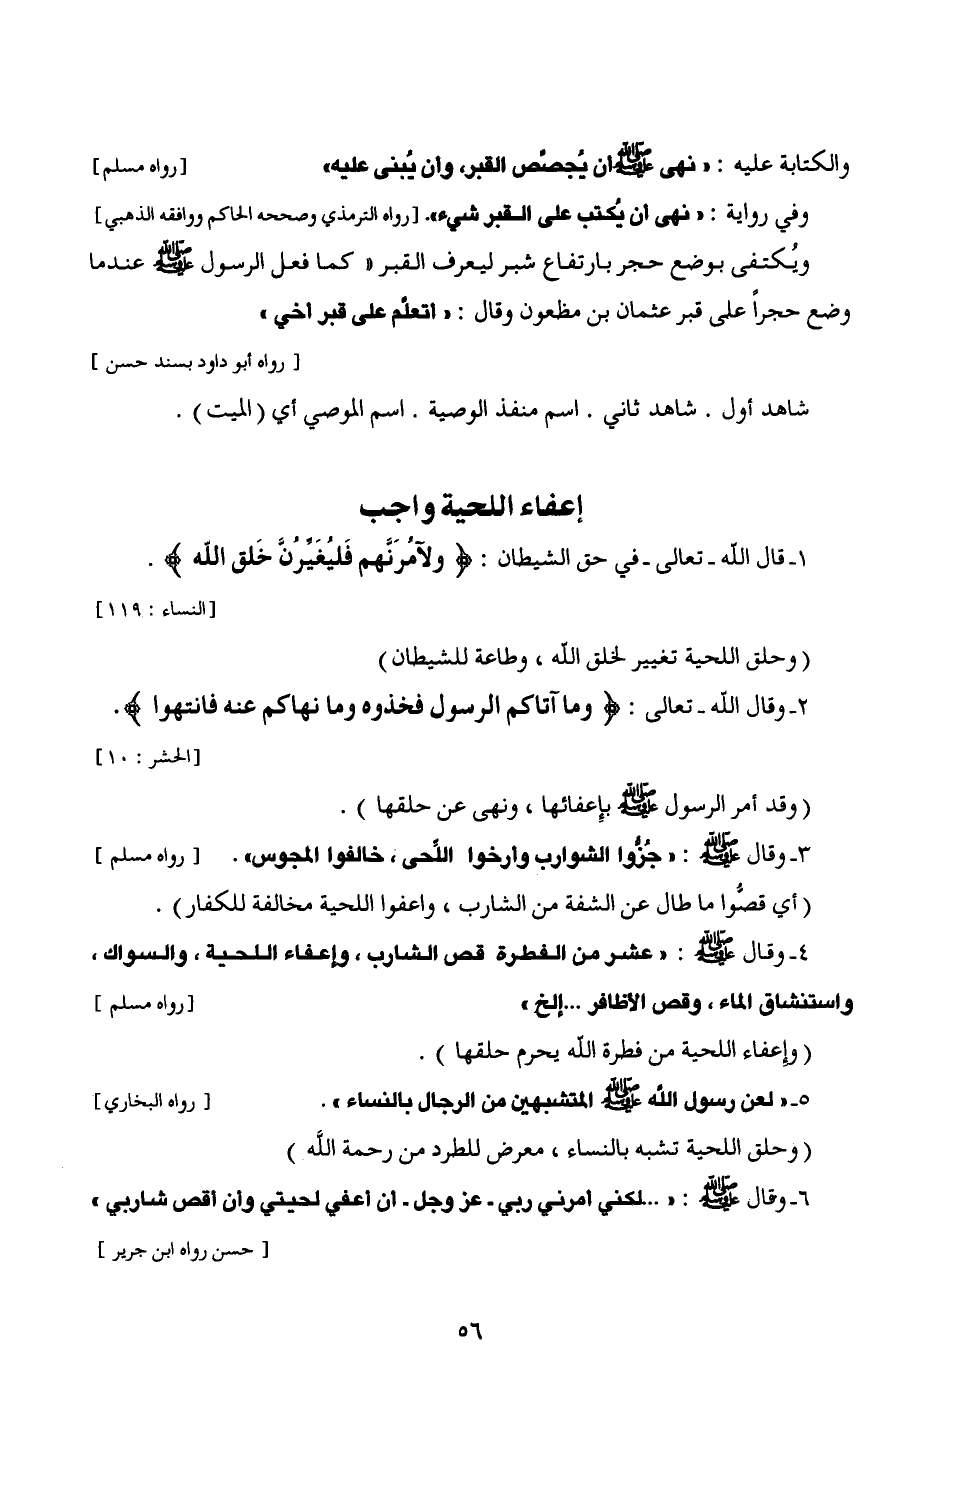 والكتابة عليه : « نهى ﷺ أن يُجصَّص القبر، وأن يُبنى عليه» [رواه مسلم]
وفي رواية : « نهى أن يُكتب على القبر شيء». [رواه الترمذي وصححه الحاكم ووافقه الذهبي]
ويُكتفى بوضع حجر بارتفاع شبر ليعرف القبر « كما فعل الرسول ﷺ عندما
وضع حجراً على قبر عثمان بن مظعون وقال : « أتعلَّم على قبر أخي »
[ رواه أبو داود بسند حسن ]
شاهد أول . شاهد ثاني . اسم منفذ الوصية . اسم الموصي أي (الميت) .
إعفاء اللحية واجب
١ـ قال الله ـ تعالى ـ في حق الشيطان : ﴿ ولآمُرَنَّهم فَليُغَيِّرُنَّ خَلق الله ﴾ .
[النساء : ١١٩]
( وحلق اللحية تغيير لخلق الله ، وطاعة للشيطان)
٢ـ وقال الله ـ تعالى : ﴿ وما آتاكم الرسول فخذوه وما نهاكم عنه فانتهوا ﴾.
[الحشر : ١٠]
( وقد أمر الرسول ﷺ بإعفائها ، ونهى عن حلقها ) .
٣ـ وقال ﷺ : « جُزُّوا الشوارب وأرخوا اللَّحى ، خالفوا المجوس» . [ رواه مسلم ]
( أي قصُّوا ما طال عن الشفة من الشارب ، واعفوا اللحية مخالفة للكفار) .
٤ـ وقال ﷺ : « عشر من الفطرة قص الشارب ، وإعفاء اللحية ، والسواك ،
واستنشاق الماء ، وقص الأظافر ...إلخ » [رواه مسلم ]
( وإعفاء اللحية من فطرة الله يحرم حلقها ) .
٥ـ « لعن رسول الله ﷺ المتشبهين من الرجال بالنساء » . [ رواه البخاري]
( وحلق اللحية تشبه بالنساء ، معرض للطرد من رحمة اللَّه )
٦ـ وقال ﷺ : « ...لكني أمرني ربي ـ عز وجل ـ أن أعفي لحيتي وأن أقص شاربي »
[ حسن رواه ابن جرير ]
٥٦